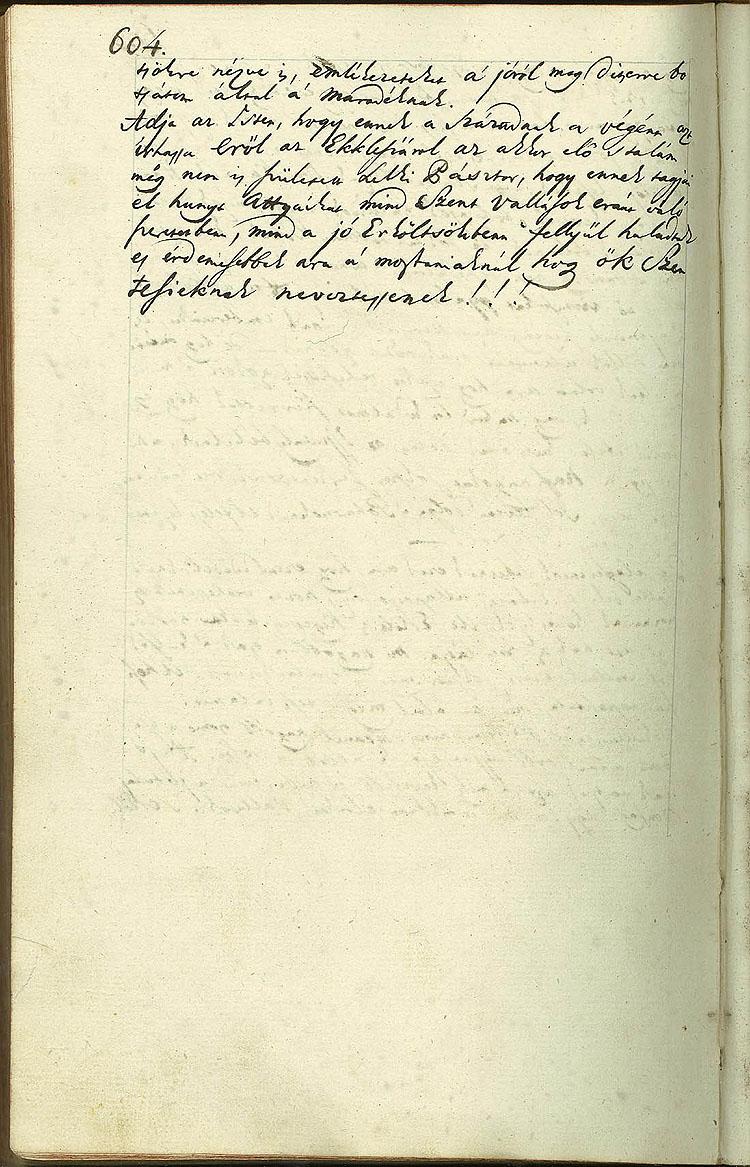 604.
sjökre nézve is, emlékezeteket a' jóról meg
által a' maradéknak.
Adja az Isten, hogy ennek a Századnak a végénn azt
írhassa erröl az Ekklésiáról az akkor élő talám
még nem is született Lelki Pásztor, hogy ennek tagjai
el hunyt Attyaikat mind a Szent vallások eránt való
mind a jó Erköltsökbenn fellyül haladták
es érdemesebbek arra a' mostaniaknál hogy ők Szen
teknek neveztessenek!!!